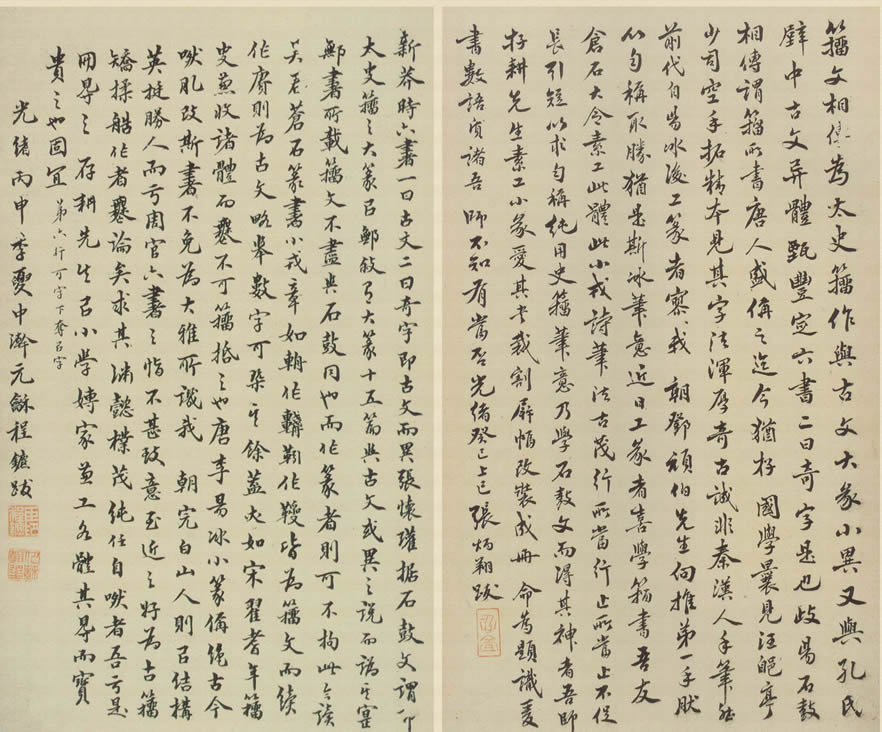 籀文相傳為太史籀作與古文大篆小異又與孔氏
壁中古文異體甄豐定六書二曰奇字是也歧陽石鼓
相傳謂籀所書唐人盛稱之迄今猶存國學曩見汪
少司空手拓精本見其字法渾厚奇古誠非秦漢人手筆
前代自陽冰後工篆者寥寥我朝鄧頑伯先生向推第一手肰
以勻稱取勝猶是斯冰筆意近日工篆者喜學籀書吾友
倉石大令素工此體此小戎詩筆法古茂行所當行止所當止不促
長引短以求勻稱純用史籀筆意乃學石鼓文而得其神者吾師
存耕先生素工小篆愛其書裁割屏幅改裝成冊命為題識爰
書數語質諸吾師不知有當否光緒癸巳上巳張炳翔跋
新莽時六書一曰古文二曰奇字即古文而異張懷瓘据石鼓文謂即
太史籀之大篆吕鄦敘有大篆十五篇與古文或異之說而譌
鄦書所載籀文不盡與石鼓同也而作篆者則可不拘此今讀
吳君蒼石篆書小戎章如
作膺則為古文略舉數字可
史兼收諸體而
肰肌改斯書不免為大雅所譏我朝完白山人則吕結構
英挺勝人而亏周官六書之恉不甚致意至近之好為古籀
矯揉造作者
冊尋之存耕先生吕小學專家兼工各體其尋而寶
貴之也固宜第六行可字下奪吕字
光緒丙申季夏中瀚元龢程鑣跋